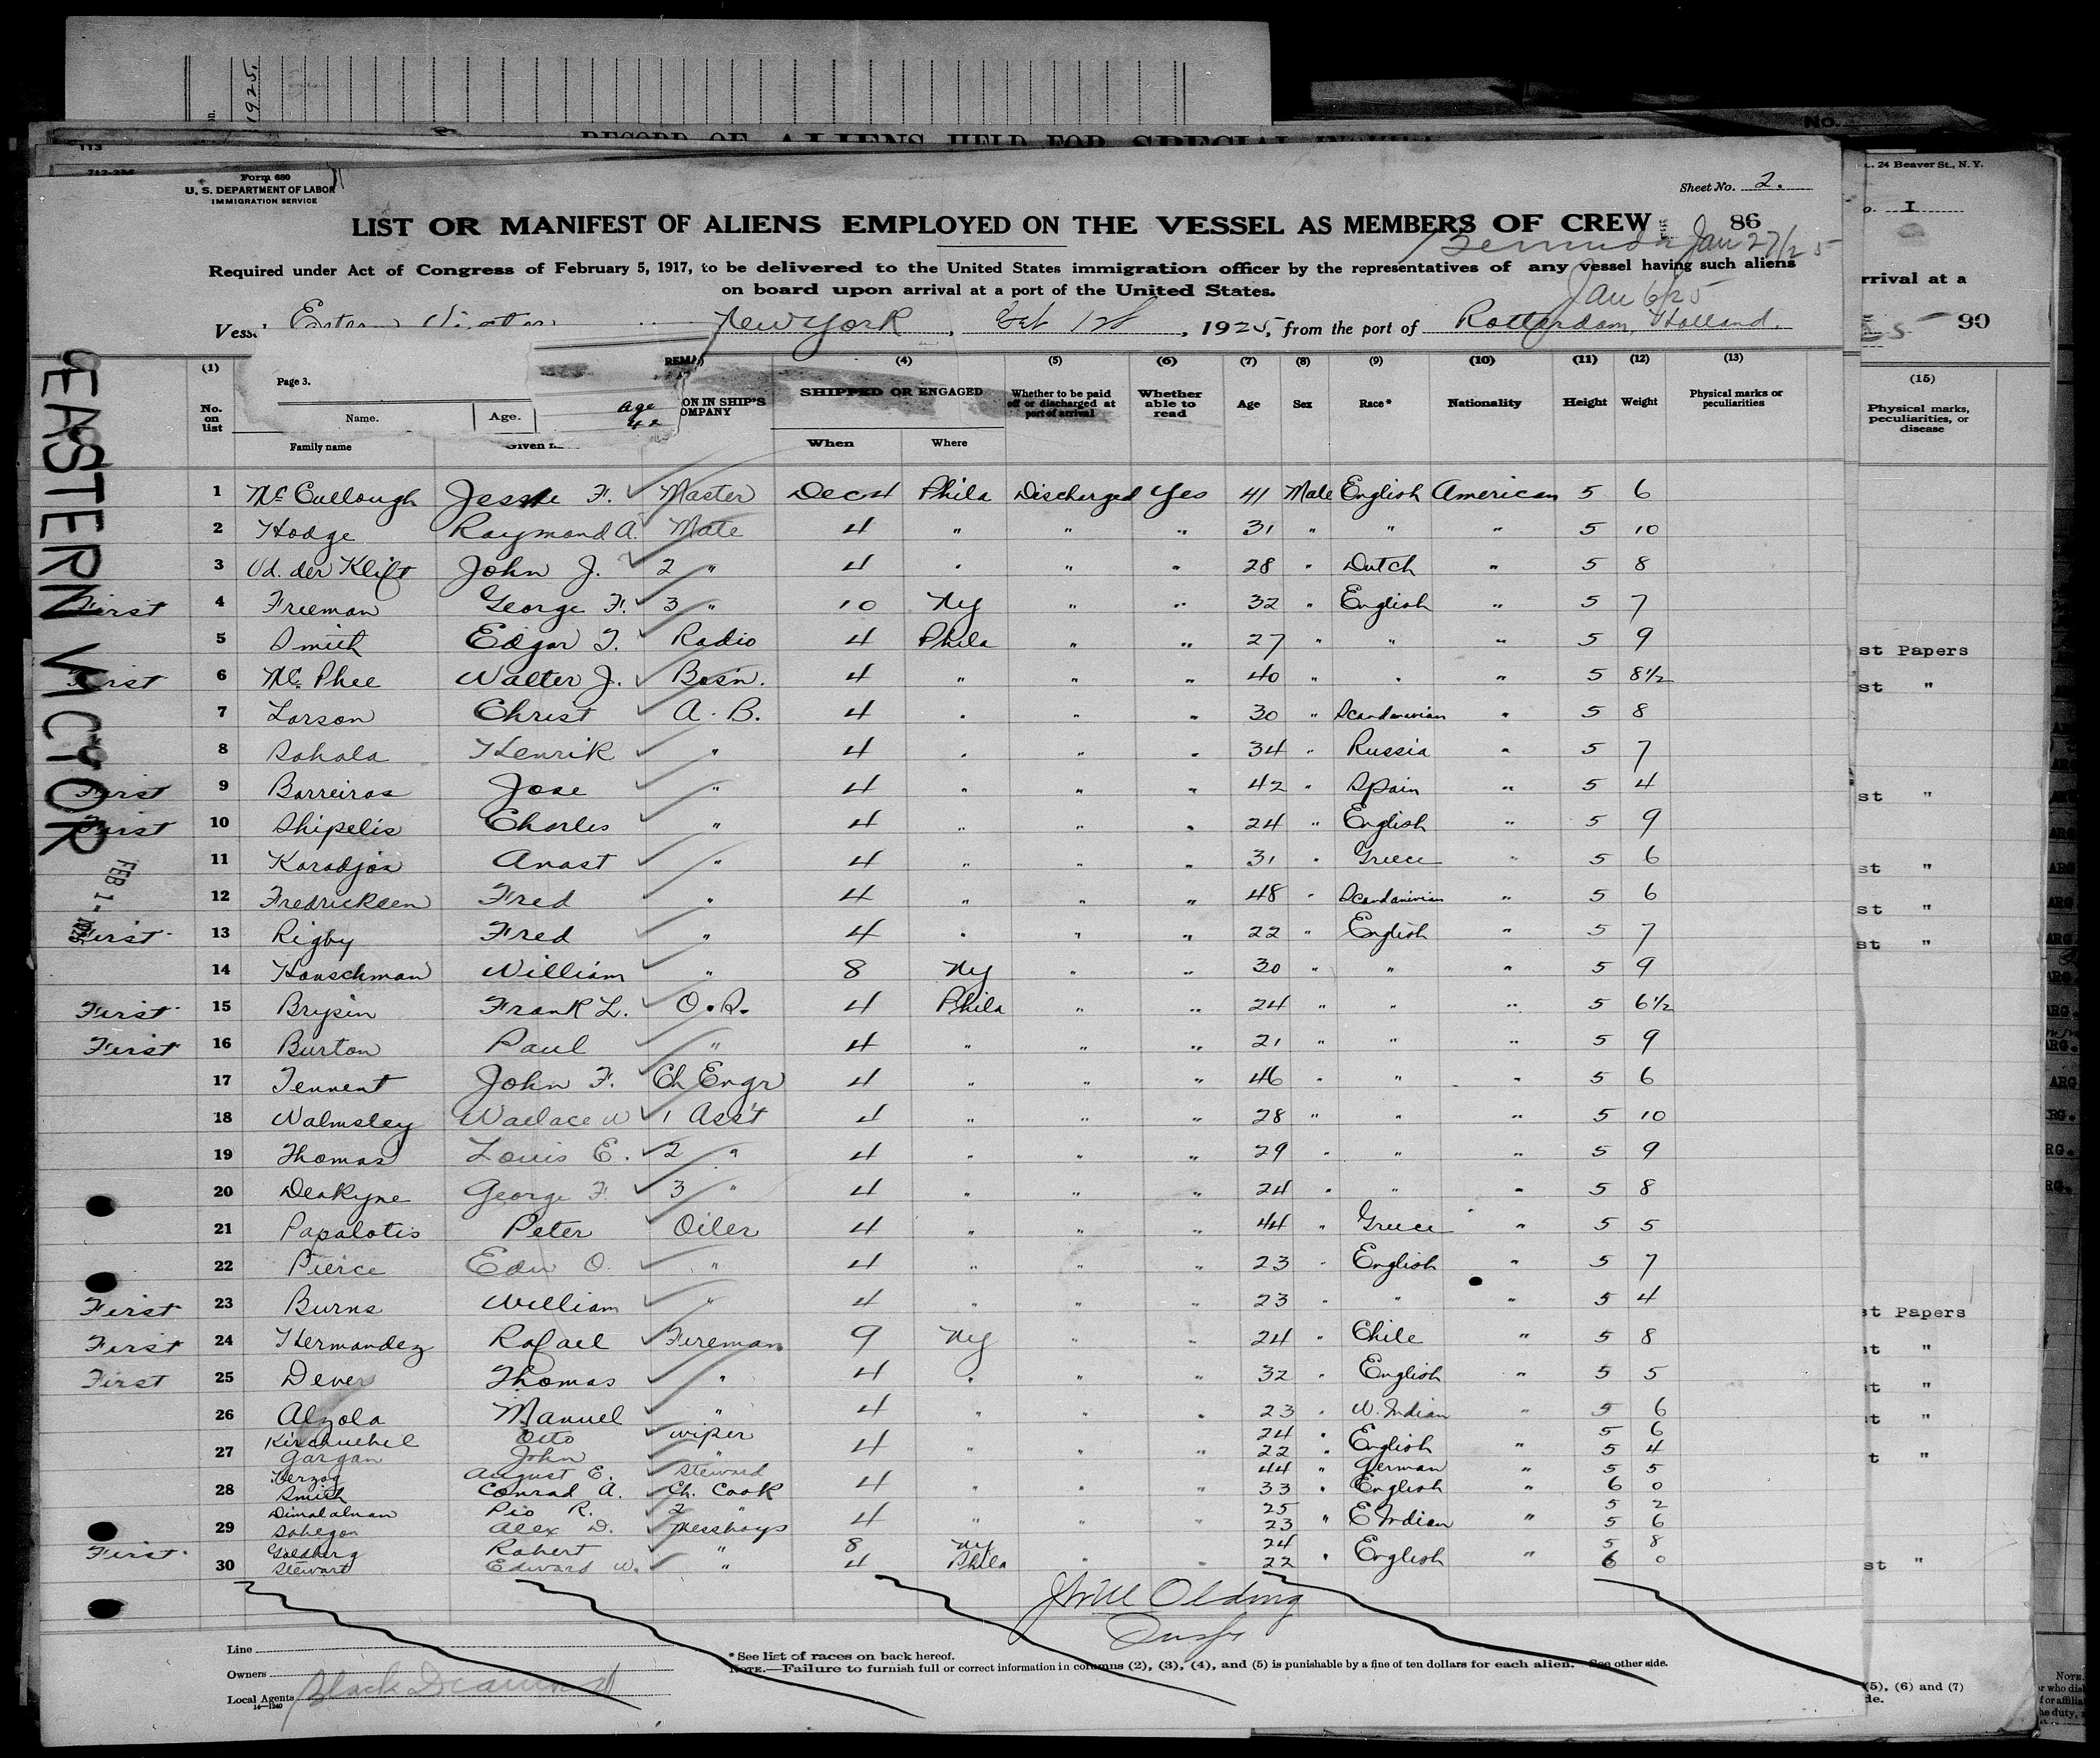 1925.
RECORD OF ALIENS HELD FOR SPECIAL
No.
113
Form 680
U. S. DEPARTMENT OF LABOR
IMMIGRATION SERVICE
Sheet No. 2.
24 Beaver St., N. Y.
LIST OR MANIFEST OF ALIENS EMPLOYED ON THE VESSEL AS MEMBERS OF CREW 86
Bermuda Jan 27/25
Required under Act of Congress of February 5, 1917, to be delivered to the United States immigration officer by the representatives of any vessel having such aliens
on board upon arrival at a port of the United States.
Jan 6/25
New York, Feb 1st, 1925, from the port of Rotterdam, Holland.
rrival at a
90
(1) (4) (5) (6) (7) (8) (9) (10) (11) (12) (13)
Page 3.
Name. Age.
Age 42
No. on list
Family name
ON IN SHIP'S OMPANY
SHIPPED OR ENGAGED
When Where
Whether to be paid off or discharged at port of arrival
Whether able to read
Age Sex Race* Nationality Height Weight
Physical marks or peculiarities
(15)
Physical marks, peculiarities, or disease
EASTERN VICTOR
FEB 1 - 1925
1 McCullough Jesse F. Master Dec 4 Phila Discharged Yes 41 Male English American 5 6
2 Hodge Raymond A. Mate 4 " " " 31 " " " 5 10
3 Vd. der Klift John J. 2 " 4 " " " 28 " Dutch " 5 8
First 4 Freeman George F. 3 " 10 Ny " " 32 " English " 5 7
5 Smith Edgar T. Radio 4 Phila " " 27 " " " 5 9
First 6 Mc Phee Walter J. Bosn. 4 " " " 40 " " " 5 8½
7 Larson Christ A. B. 4 " " " 30 " Scandanivian " 5 8
8 Sahala Henrik " 4 " " " 34 " Russia " 5 7
First 9 Barreiras Jose " 4 " " " 42 " Spain " 5 4
First 10 Shipelis Charles " 4 " " " 24 " English " 5 9
11 Karadjas Anast " 4 " " " 31 " Greece " 5 6
12 Fredricksen Fred " 4 " " " 48 " Scandanivian " 5 6
First 13 Rigby Fred " 4 " " " 22 " English " 5 7
14 Hanschman William " 8 Ny " " 30 " " " 5 9
First 15 Brysin Frank L. O.S. 4 Phila " " 24 " " " 5 6½
First 16 Burton Paul " 4 " " " 21 " " " 5 9
17 Tennent John F. Ch Engr 4 " " " 46 " " " 5 6
18 Walmsley Wallace W 1 Ass't 4 " " " 28 " " " 5 10
19 Thomas Louis E. 2 " 4 " " " 29 " " " 5 9
20 Deakyne George F. 3 " 4 " " " 24 " " " 5 8
21 Papalotis Peter Oiler 4 " " " 44 " Greece " 5 5
22 Pierce Edw O. " 4 " " " 23 " English " 5 7
First 23 Burns William " 4 " " " 23 " " " 5 4
First 24 Hermandez Rafael Fireman 9 Ny " " 24 " Chile " 5 8
First 25 Dever Thomas " 4 " " " 32 " English " 5 5
26 Alzola Manuel " 4 " " " 23 " W. Indian " 5 6
Kirschuehel Otto wiper 24 " 5 6
27 Gargan John " 4 " " " 22 " English " 5 4
Herzog August E. Steward 44 " German " 5 5
28 Smith Conrad A. Ch. Cook 4 " " " 33 " English " 6 0
Dimalalman Pio R. 2 " 25 5 2
29 Sahegon Alex D. Messboys 4 " " " 23 " E Indian " 5 6
First Goldberg Robert " 8 Ny 24 5 8
30 Stewart Edward W. " 4 Phila " " 22 " English " 6 0
st Papers
st "
st "
st "
st "
st "
st Papers
t "
t "
t "
t "
st "
Line
Owners
Local Agents Black Diamond
14—1240
*See list of races on back hereof.
NOTE.—Failure to furnish full or correct information in columns (2), (3), (4), and (5) is punishable by a fine of ten dollars for each alien. See other side.
(5), (6) and (7)
de.